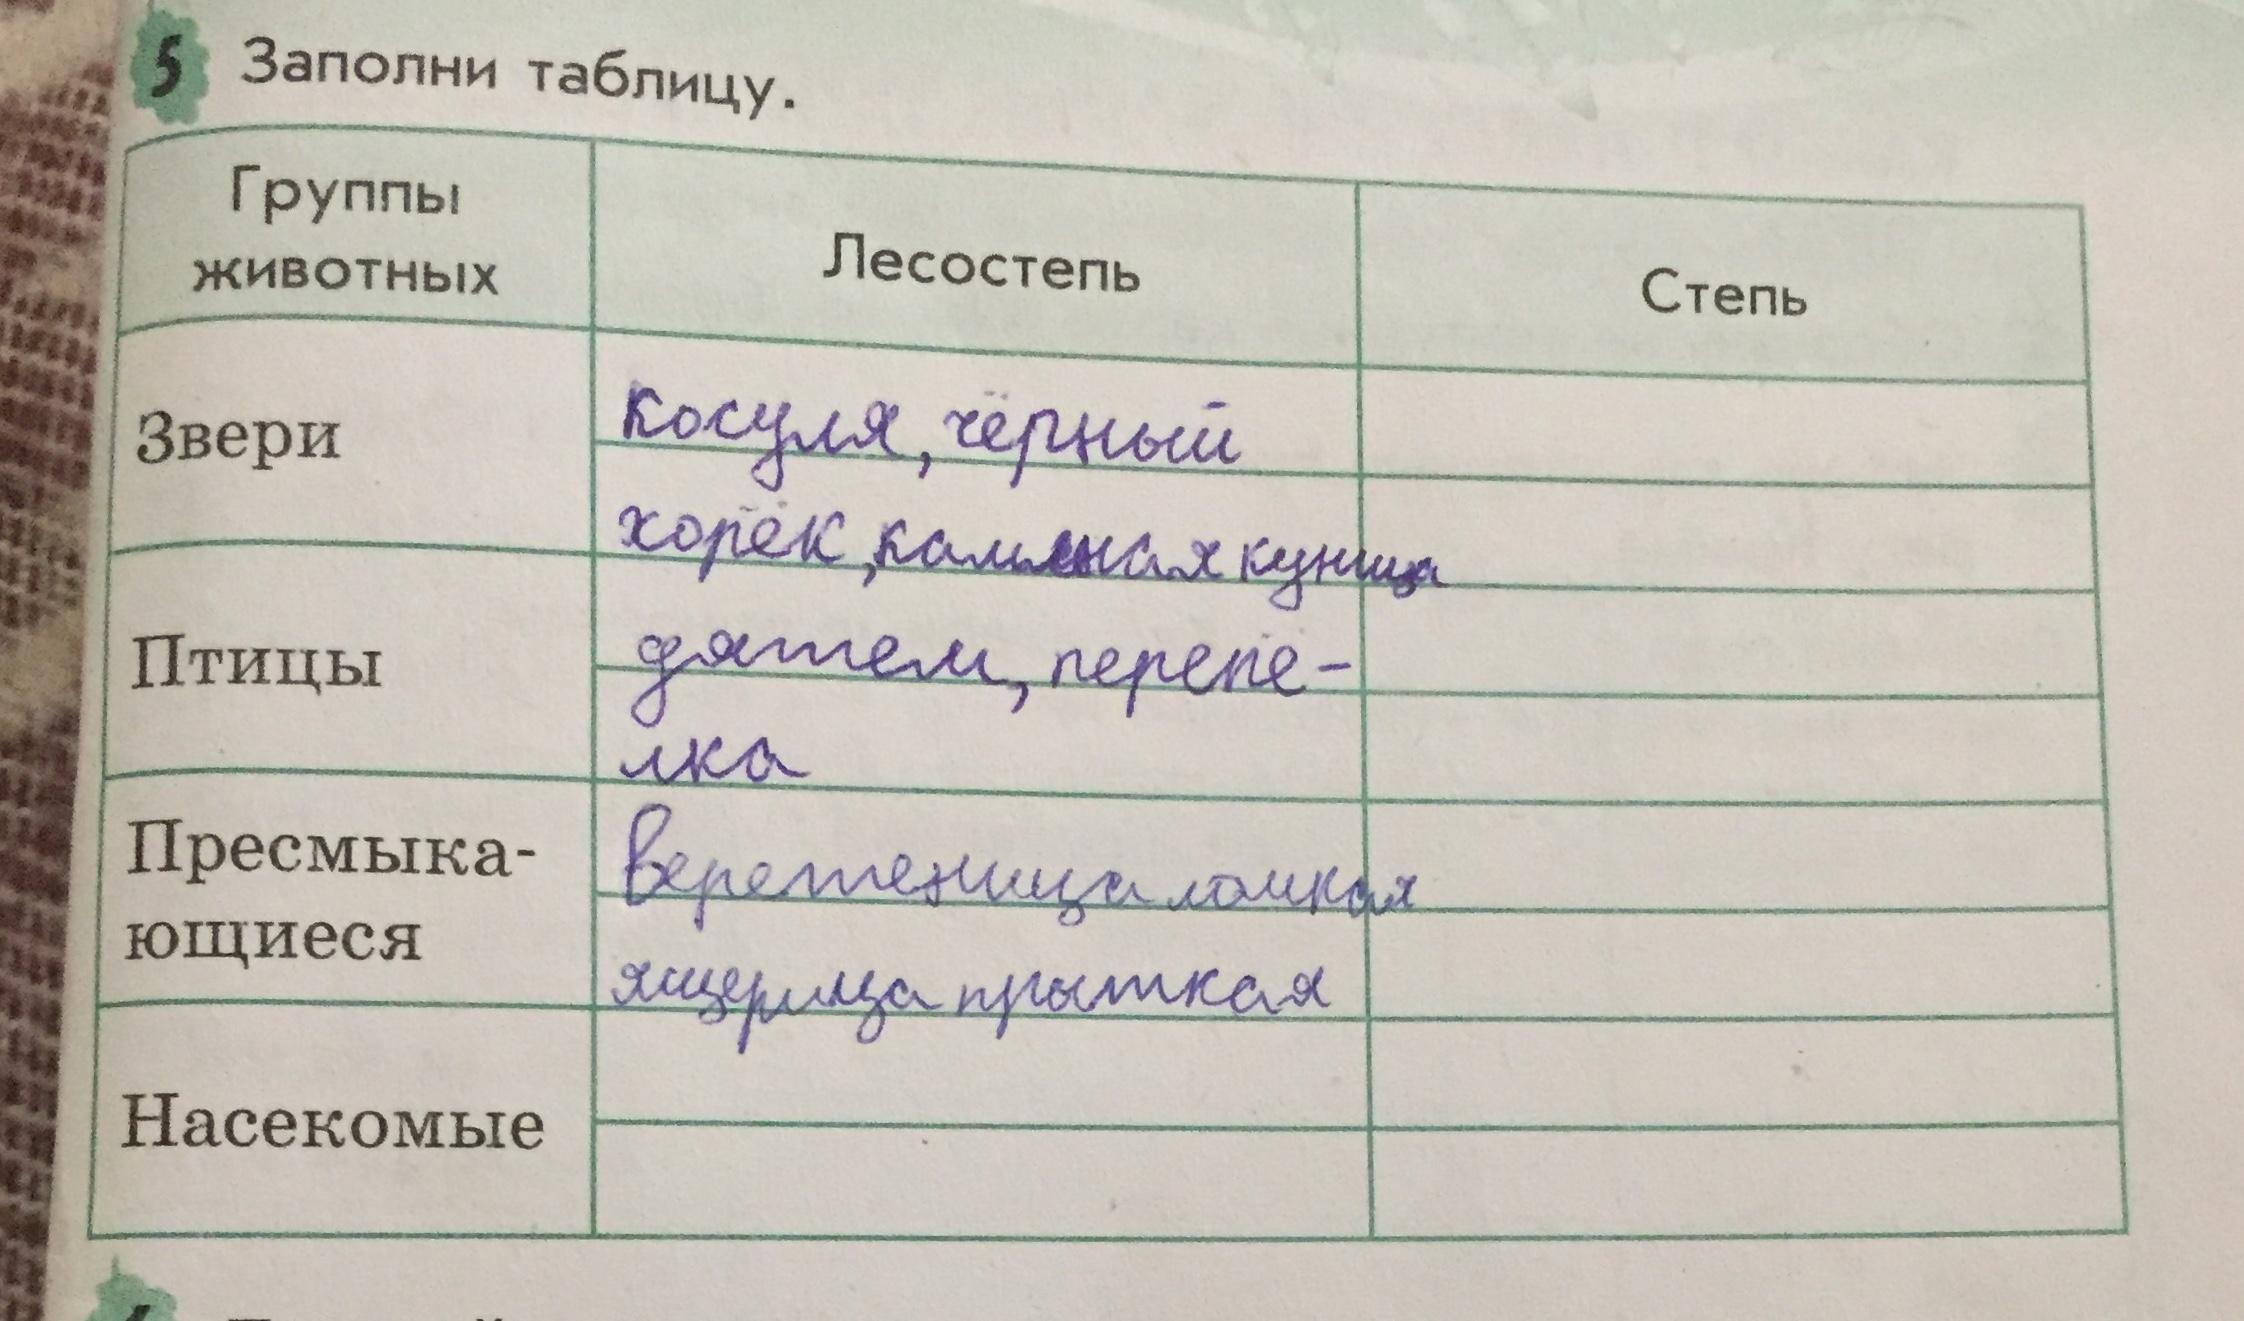 5 Заполни таблицу.
Группы животных
Лесостепь
Степь
Звери
косуля, чёрный
хорёк, каменная куница
Птицы
дятел, перепё-
лка
Пресмыка-
ющиеся
веретеница ломкая
ящерица прыткая
Насекомые